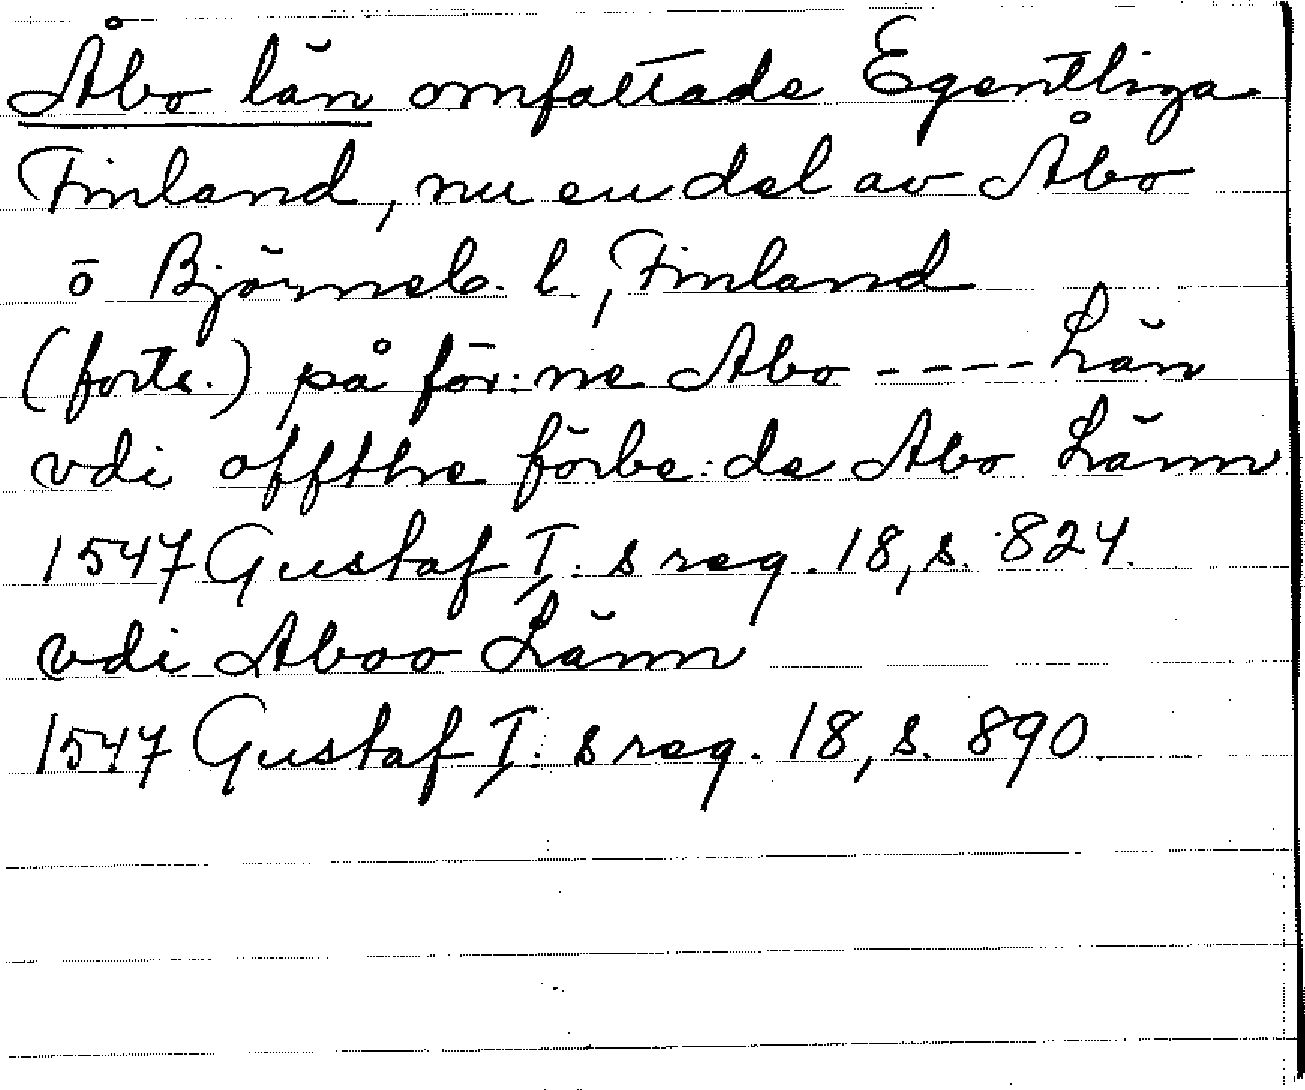 Åbo län omfattade Egentliga
Finland, nu en del av Åbo
o Björneb. l., Finland
(forts.) på för:ne Abo ---- Län
vdi offthe förbe:de Abo Länn
1547 Gustaf I:s reg. 18, s. 824.
vdi Aboo Länn
1547 Gustaf I:s reg. 18, s. 890